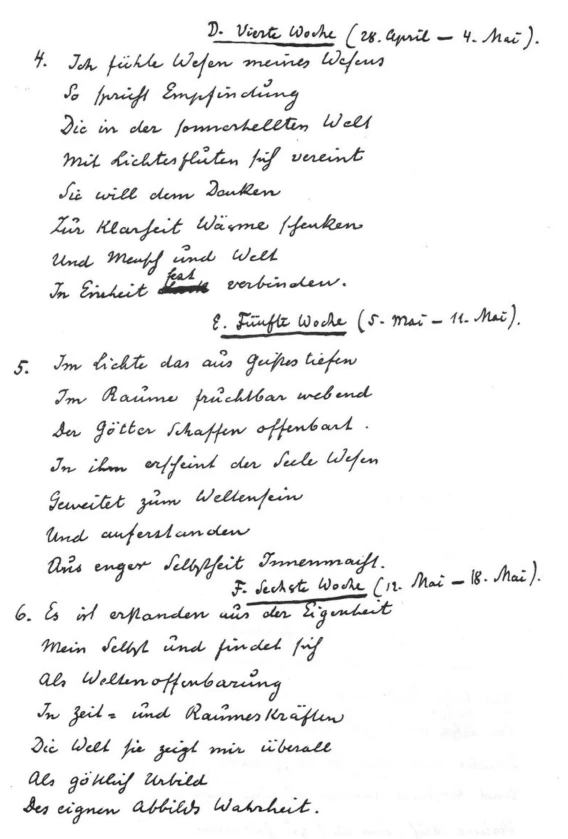 D. Vierte Woche (28. April – 4. Mai).
4. Ich fühle Wesen meines Wesens
So spricht Empfindung
Die in der sonnerhellten Welt
Mit Lichtesfluten sich vereint
Sie will dem Denken
Zur Klarheit Wärme schenken
Und Mensch und Welt
In Einheit fest verbinden.
E. Fünfte Woche (5. Mai – 11. Mai).
5. Im Lichte das aus Geistestiefen
Im Raume fruchtbar webend
Der Götter Schaffen offenbart.
In ihm erscheint der Seele Wesen
Geweitet zum Weltensein
Und auferstanden
Aus enger Selbstheit Innenmacht.
F. Sechste Woche (12. Mai – 18. Mai).
6. Es ist erstanden aus der Eigenheit
Mein Selbst und findet sich
Als Weltenoffenbarung
In Zeit= und Raumeskräften
Die Welt sie zeigt mir überall
Als göttlich Urbild
Des eignen Abbilds Wahrheit.